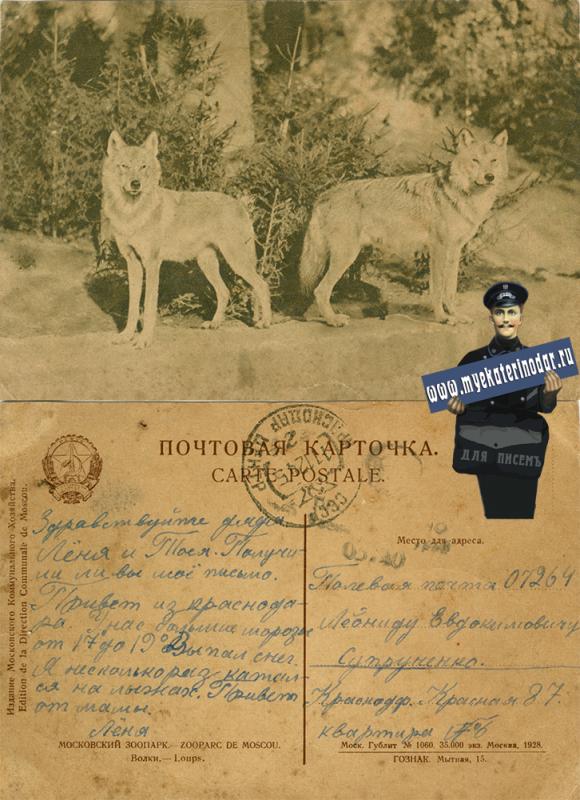 www.myekaterinodar.ru
ДЛЯ ПИСЕМЪ
ПОЧТОВАЯ КАРТОЧКА.
CARTE POSTALE.
Издание Московского Коммунального Хозяйства.
Edition de la Direction Communale de Moscou.
Здравствуйте дядя
Лёня и Тося. Получи-
ли ли вы моё письмо.
Привет из Краснода-
ра. У нас большие морозы
от 17 до 19° Выпал снег.
Я несколько раз катал-
ся на лыжах. Привет
от мамы.
Лёня
МОСКОВСКИЙ ЗООПАРК.— ZOOPARC DE MOSCOU.
Волки.— Loups.
Место для адреса.
Полевая почта 07264
Леониду Евдокимовичу
Супруненко.
Краснодар. Красная 87.
квартира
Моск. Гублит № 1060. 35.000 экз. Москва, 1928.
ГОЗНАК. Мытная, 15.